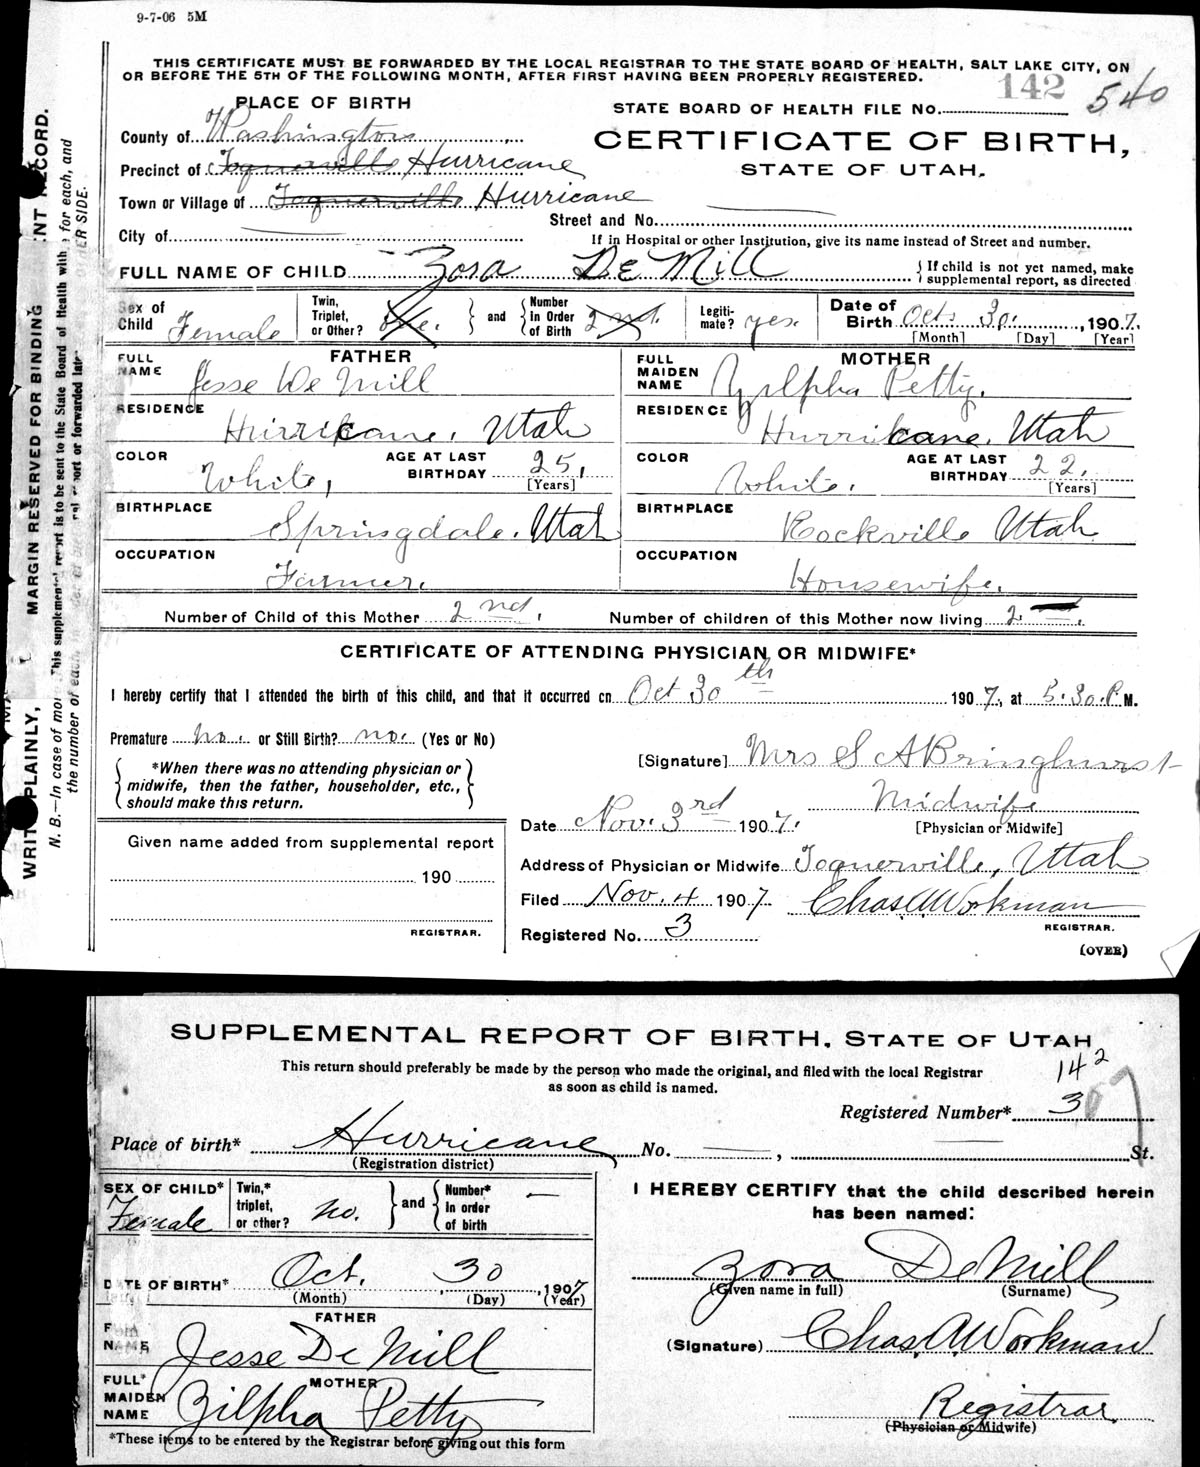 9-7-06 5M
THIS CERTIFICATE MUST BE FORWARDED BY THE LOCAL REGISTRAR TO THE STATE BOARD OF HEALTH, SALT LAKE CITY, ON
OR BEFORE THE 5TH OF THE FOLLOWING MONTH, AFTER FIRST HAVING BEEN PROPERLY REGISTERED.
142 540
PLACE OF BIRTH
STATE BOARD OF HEALTH FILE NO.
County of Washington
CERTIFICATE OF BIRTH,
Precinct of Toquerville Hurricane
STATE OF UTAH.
Town or Village of Toquerville Hurricane
Street and No.
City of
If in Hospital or other Institution, give its name instead of Street and number.
FULL NAME OF CHILD Zora De Mill
If child is not yet named, make
supplemental report, as directed
Sex of Child Female
Twin, Triplet, or Other? One.
and
Number In Order of Birth 2nd.
Legiti-mate? yes.
Date of Birth Oct. 30., 1907.
[Month] [Day] [Year]
FATHER
FULL NAME Jesse De Mill
MOTHER
FULL MAIDEN NAME Zylpha Petty.
RESIDENCE Hurricane. Utah
RESIDENCE Hurricane. Utah
COLOR White,
AGE AT LAST BIRTHDAY 25,
[Years]
COLOR White.
AGE AT LAST BIRTHDAY 22.
[Years]
BIRTHPLACE Springdale. Utah
BIRTHPLACE Rockville Utah
OCCUPATION Farmer.
OCCUPATION Housewife.
Number of Child of this Mother 2nd.
Number of children of this Mother now living 2
CERTIFICATE OF ATTENDING PHYSICIAN OR MIDWIFE*
I hereby certify that I attended the birth of this child, and that it occurred on Oct 30th 1907, at 5.30.P M.
Premature no. or Still Birth? no. (Yes or No)
*When there was no attending physician or
midwife, then the father, householder, etc.,
should make this return.
[Signature] Mrs S A Bringhurst
Midwife
[Physician or Midwife]
Date Nov. 3rd 1907.
Address of Physician or Midwife Toquerville, Utah
Filed Nov. 4 1907 Chas A Workman
REGISTRAR.
Registered No. 3
(OVER)
Given name added from supplemental report
190
REGISTRAR.
MARGIN RESERVED FOR BINDING
SUPPLEMENTAL REPORT OF BIRTH, STATE OF UTAH
This return should preferably be made by the person who made the original, and filed with the local Registrar
as soon as child is named.
142
Registered Number* 3
Place of birth* Hurricane No. , St.
(Registration district)
SEX OF CHILD* Female
Twin,* triplet, or other? no.
and
Number* In order of birth —
DATE OF BIRTH* Oct. 30, 1907
(Month) (Day) (Year)
FATHER
NAME Jesse De Mill
MOTHER
FULL* MAIDEN NAME Zilpha Petty
*These items to be entered by the Registrar before giving out this form
I HEREBY CERTIFY that the child described herein
has been named:
Zora De Mill
(Given name in full) (Surname)
(Signature) Chas. A. Workman
Registrar.
(Physician or Midwife)